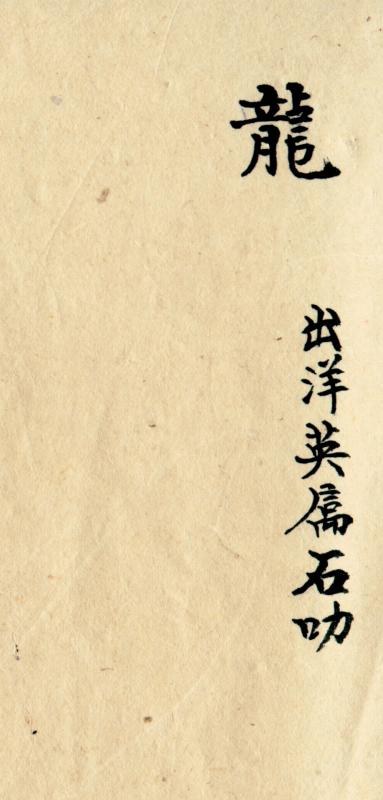 龍
出洋英属石叻